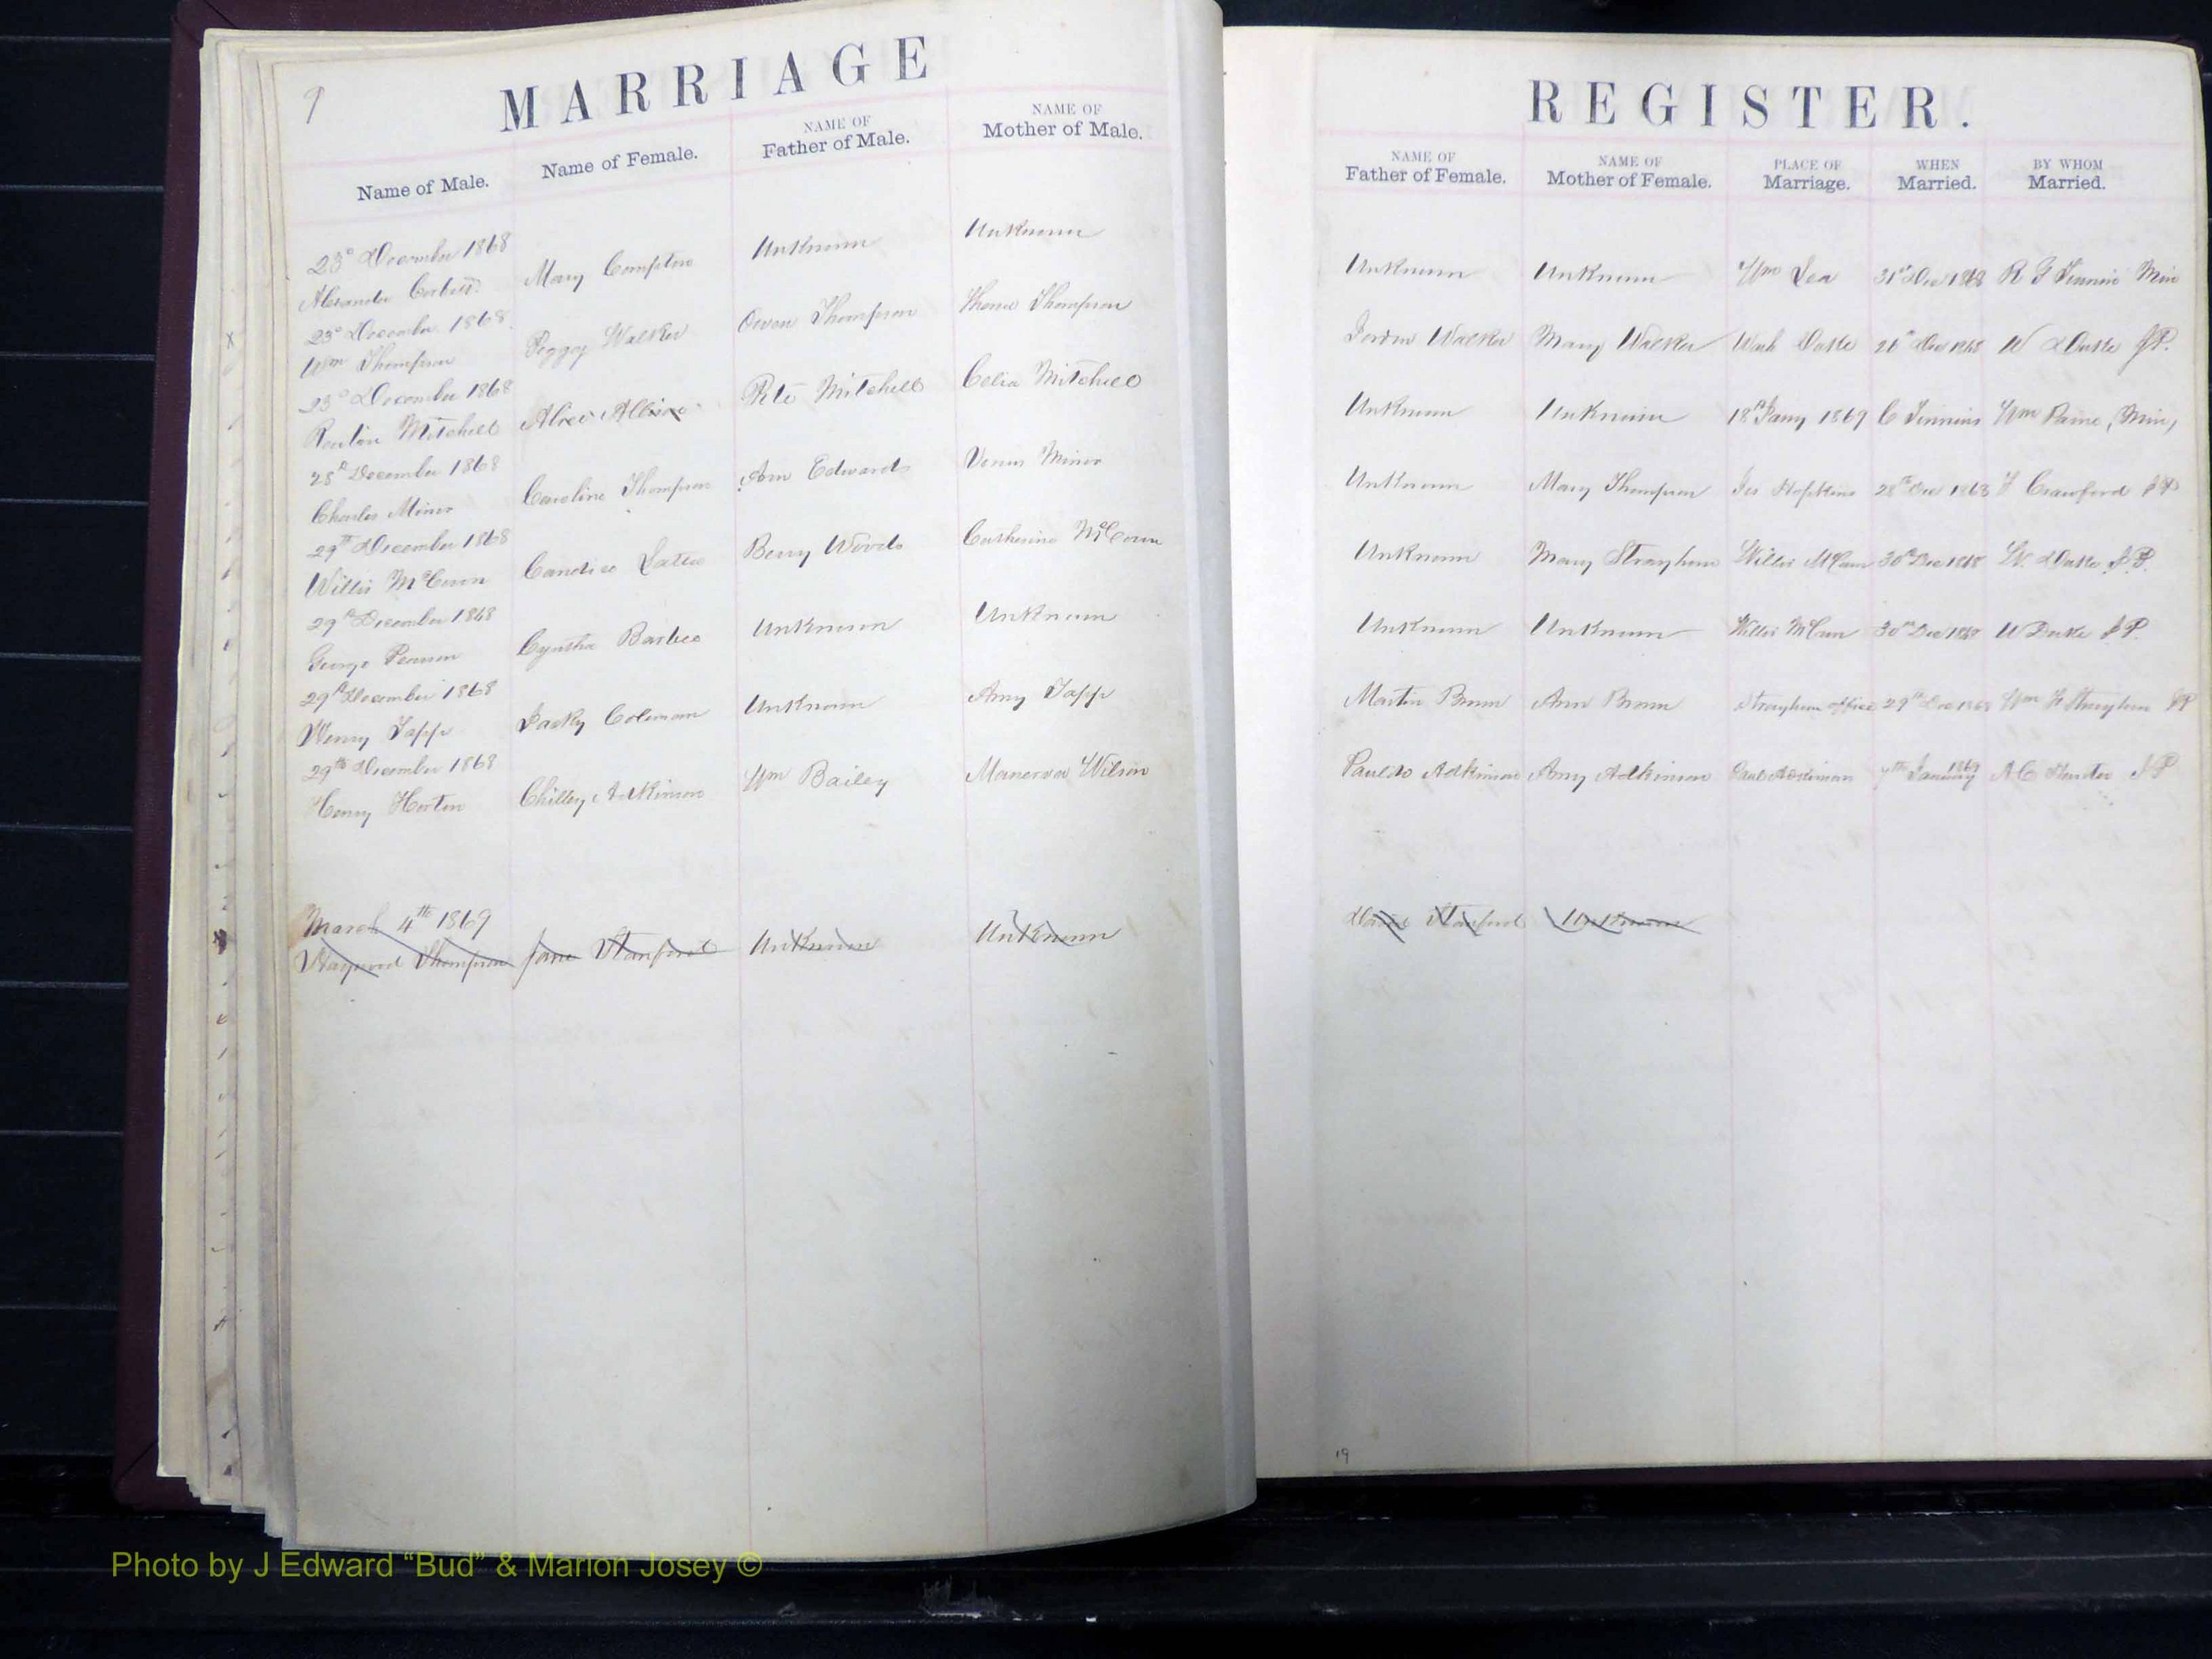 9
MARRIAGE
Name of Male. Name of Female. NAME OF Father of Male. NAME OF Mother of Male.
23d December 1868
Alexander Corbett Mary Compton Unknown Unknown
23d December 1868
Wm Thompson Peggy Walker Owen Thompson Thompson
23d December 1868
Mitchell Alice Pete Mitchell Celia Mitchell
28th December 1868
Charles Minor Caroline Thompson Edwards Venus Minor
29th December 1868
Willis McCown Berry Woods Catherine McCown
29th December 1868
George Pearson Cyntha Barbee Unknown Unknown
29th December 1868
Tapp Coleman Unknown Amy Tapp
29th December 1868
Henry Horton Chilley Adkinson Wm Bailey Manerva Wilson
March 4th 1869
Haywood Thompson Jane Stanford Unknown Unknown
REGISTER.
NAME OF Father of Female. NAME OF Mother of Female. PLACE OF Marriage. WHEN Married. BY WHOM Married.
Unknown Unknown Wm Lea 31st Dec 1868 R G Tinnin Min
Walker Mary Walker Wash Duke Dec 1868 W Duke JP.
Unknown Unknown 18th Jany 1869 C Tinnins Wm Paine, Min,
Unknown Mary Thompson Hopkins 28th Dec 1868 Crawford JP
Unknown Mary Strayhorn Willis McCown 30th Dec 1868 W. Duke J.P.
Unknown Unknown Willis McCown 30th Dec 1868 W Duke J.P.
Martin Brown Ann Brown Strayhorn office 29th Dec 1868 Wm Strayhorn JP
Adkinson Amy Adkinson 7th January 1869 A C Hunter J P
Stanford Unknown
19
Photo by J Edward “Bud” & Marion Josey ©